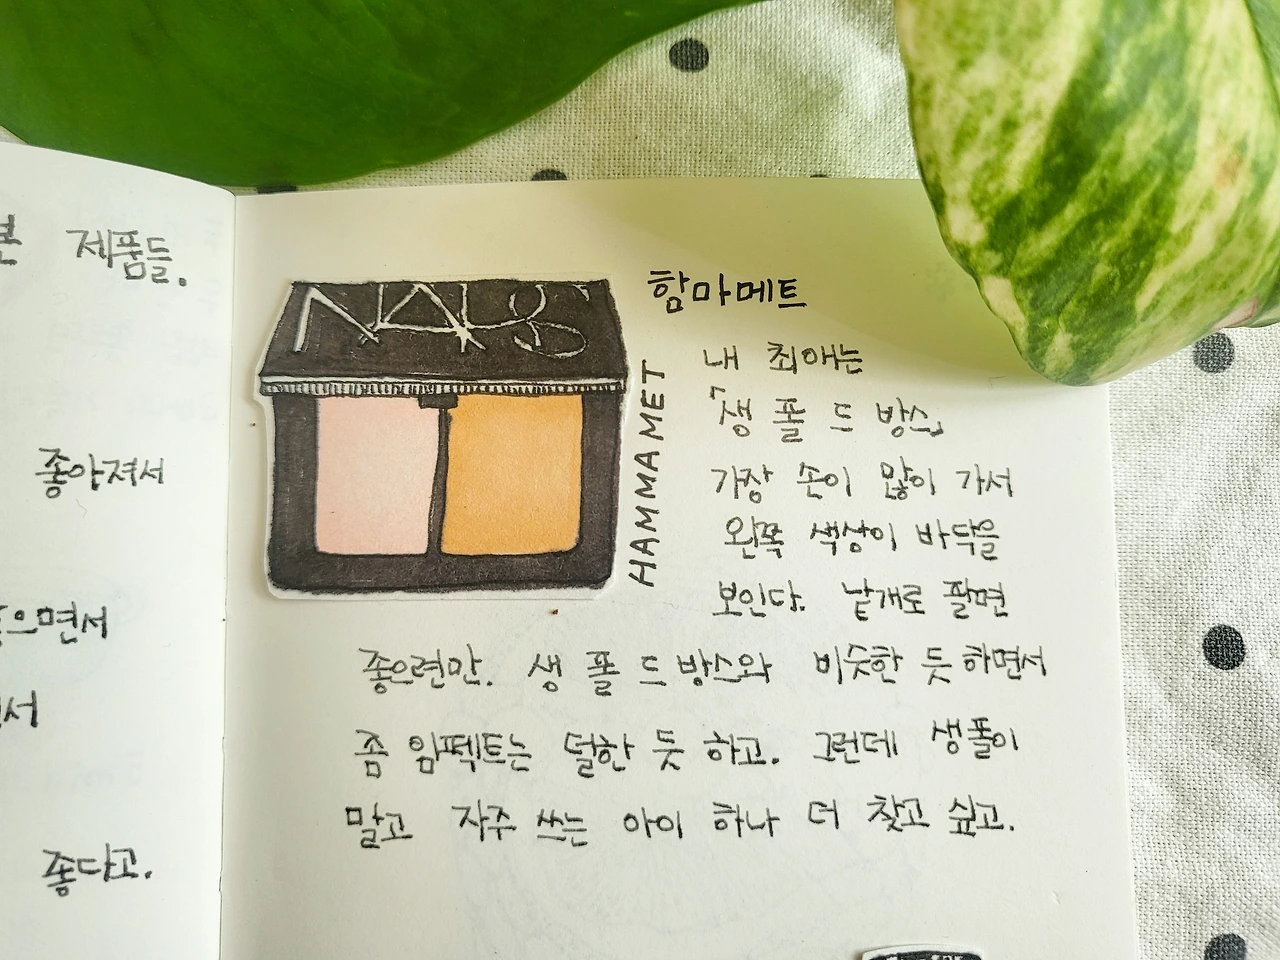 제품들.
좋아져서
으면서
서
좋다고.
NARS
HAMMAMET
함마메트
내 최애는
「생 폴 드 방스」
가장 손이 많이 가서
왼쪽 색상이 바닥을
보인다. 낱개로 팔면
좋으련만. 생 폴 드 방스와 비슷한 듯 하면서
좀 임펙트는 덜한 듯 하고. 그런데 생폴이
말고 자주 쓰는 아이 하나 더 찾고 싶고.